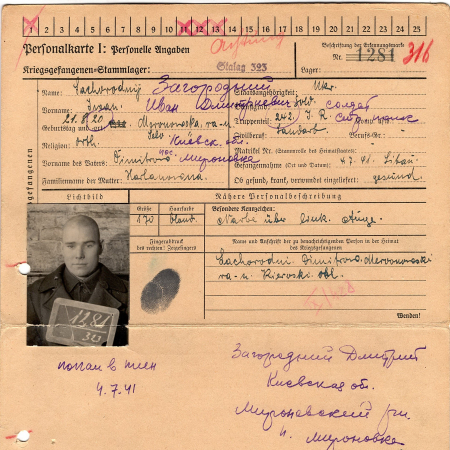 1 2 3 4 5 6 7 8 9 10 11 12 13 14 15 16 17 18 19 20 21 22 23 24 25
Personalkarte I: Personelle Angaben
Beschriftung der Erkennungsmarke
Kriegsgefangenen-Stammlager: Stalag 323
Nr. 1281 316
Lager:
Name: Sachorodnij Загородний
Staatsangehörigkeit: Ukr.
Vorname: Iwan Иван Дмитриевич
Dienstgrad: Sold. солдат
Geburtstag und -ort: 21.8.20 Mironowska ra-n
Truppenteil: 242. I. R.
Religion: orth. Киевск. обл.
Zivilberuf: Landarb. Berufs-Gr.:
Matrikel Nr.
Vorname des Vaters: Dimitro Мироновка
Gefangennahme (Ort und Datum): 4.7.41
Familienname der Mutter:
Ob gesund, krank, verwundet eingeliefert: gesund
Lichtbild
Nähere Personalbeschreibung
Größe Haarfarbe Besondere Kennzeichen:
170 blond Narbe über link. Auge.
Fingerabdruck des rechten Zeigefingers
Name und Anschrift der zu benachrichtigenden Person in der Heimat des Kriegsgefangenen
Sachorodni Dimitro
ra-n Kiewski obl.
Wenden!
1281
323
попал в плен
4.7.41
Загородний Дмитрий
Киевская об.
Мироновский
н. Мироновка